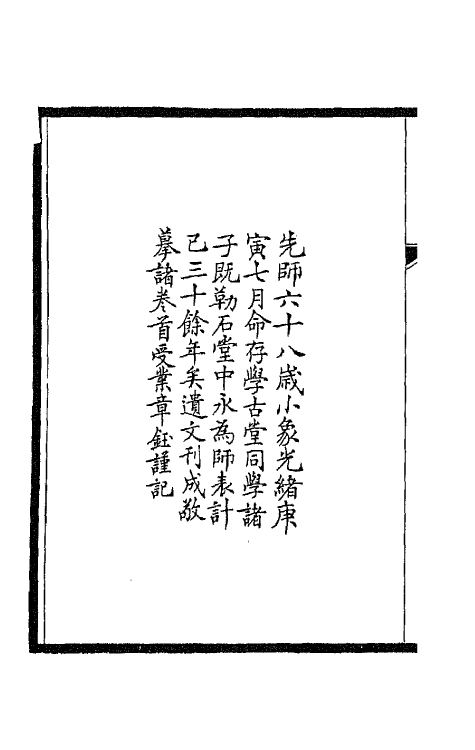 先師六十八歲小象光緒庚
寅七月命存學古堂同學諸
子既勒石堂中永為師表計
已三十餘年矣遺文刊成敬
摹諸卷首受業章鈺謹記